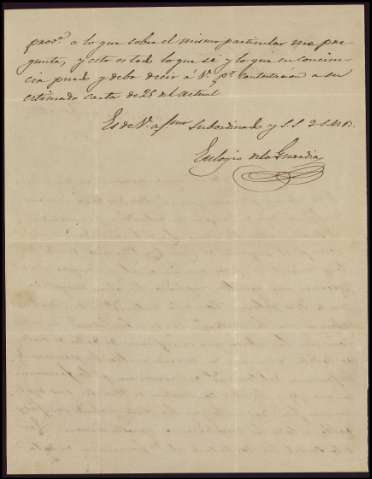 pecto a lo que sobre el mismo particular me pre
gunta, y esto es todo lo que sé y lo que en concien
cia puedo y debo decir á V. pr. contestacion a su
estimada carta de 25 del actual
Es de V. afmo subordinado y S.S. Q.S.M.B.
Eulogio de la Guardia